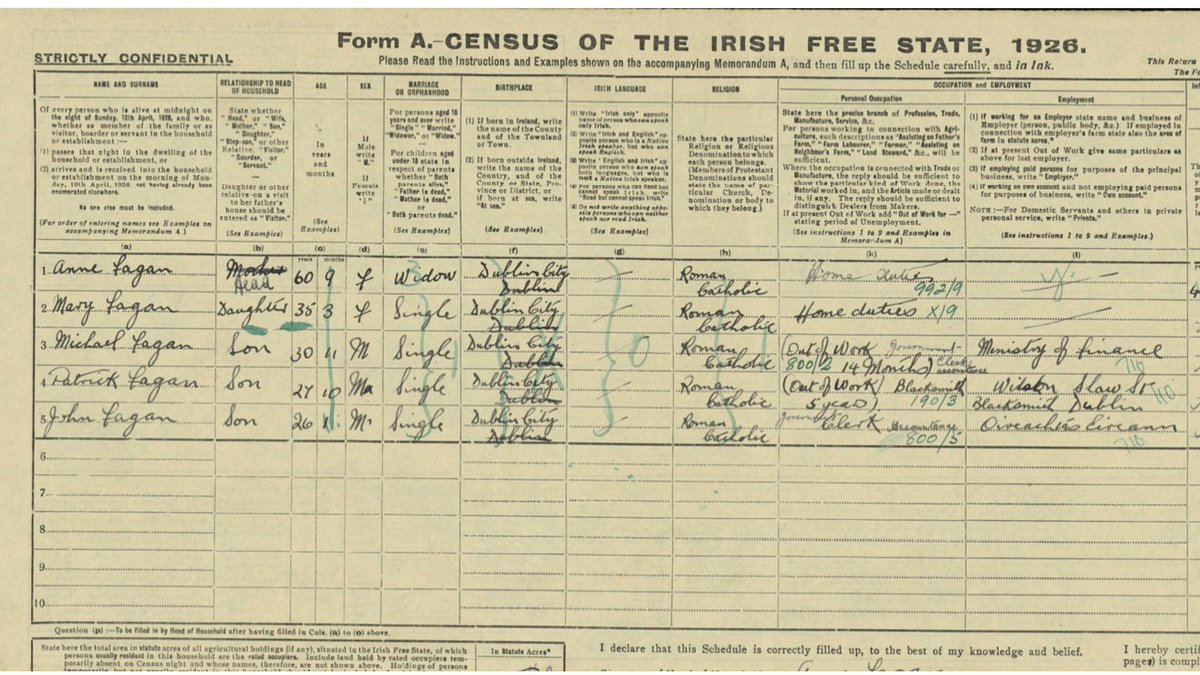 Form A.-CENSUS OF THE IRISH FREE STATE, 1926.
STRICTLY CONFIDENTIAL
Please Read the Instructions and Examples shown on the accompanying Memorandum A, and then fill up the Schedule carefully, and in Ink.
This Return
The Fo
NAME AND SURNAME
RELATIONSHIP TO HEAD OF HOUSEHOLD
AGE
SEX
MARRIAGE OR ORPHANHOOD
BIRTHPLACE
IRISH LANGUAGE
RELIGION
OCCUPATION AND EMPLOYMENT
Personal Occupation
Employment
Of every person who is alive at midnight on
the night of Sunday, 18th April, 1926, and who,
whether as member of the family or as
visitor, boarder or servant in the household
or establishment :—
(1) passes that night in the dwelling of the
household or establishment, or
(2) arrives and is received into the household
or establishment on the morning of Mon-
day, 19th April, 1926, not having already been
enumerated elsewhere.
No one else must be included.
(For order of entering names see Examples on
accompanying Memorandum A.)
State whether
"Head," or "Wife,"
"Mother," "Son,"
"Daughter,"
"Step-son," or other
Relative, "Visitor,"
"Boarder," or
"Servant."
Daughter or other
relative on a visit
to her father's
house should be
entered as "Visitor."
(See Examples)
In
years
and
months
(See
Examples)
If
Male
write
"M."
If
Female
write
"F."
(See Examples)
For persons aged 18
years and over write
"Single" "Married,"
"Widower," or "Widow."
For children aged
under 18 state in
respect of parents
whether "Both
parents alive,"
"Father is dead,"
"Mother is dead,"
or
"Both parents dead."
(See Examples)
(1) If born in Ireland, write
the name of the County
and of the Townland
or Town.
(2) If born outside Ireland,
write the name of the
Country, and of the
County or State, Pro-
vince or District, or
if born at sea, write
"At sea."
(See Examples)
(1) Write "Irish only" opposite
name of persons who can speak
only Irish.
(2) Write "Irish and English" op-
posite person who is a Native
Irish speaker, but who can
speak English.
(3) Write "English and Irish" op-
posite persons who can speak
both languages, but who is
not a Native Irish speaker.
(4) For persons who can Read but
cannot speak Irish, write
"Read but cannot speak Irish."
(5) Do not write anything oppo-
site persons who can neither
speak nor read Irish.
State here the particular
Religion or Religious
Denomination to which
each person belongs.
(Members of Protestant
Denominations should
state the name of par-
ticular Church, De-
nomination or body to
which they belong.)
State here the precise branch of Profession, Trade,
Manufacture, Service, &c.
For persons working in connection with Agri-
culture, such descriptions as "Assisting on Father's
Farm," "Farm Labourer," "Farmer," "Assisting on
Neighbour's Farm," "Land Steward," &c., will be
sufficient.
Where the occupation is connected with Trade or
Manufacture, the reply should be sufficient to
show the particular kind of Work done, the
Material worked in, and the Article made or dealt
in, if any. The reply should be sufficient to
distinguish Dealers from Makers.
If at present Out of Work add "Out of Work for —"
stating period of Unemployment.
(See instructions 1 to 9 and Examples in
Memorandum A)
(1) If working for an Employer state name and business of
Employer (person, public body, &c.) If employed in
connection with employer's farm state also the area of
farm in statute acres."
(2) If at present Out of Work give same particulars as
above for last employer.
(3) If employing paid persons for purposes of the principal
business, write "Employer."
(4) If working on own account and not employing paid persons
for purposes of business, write "Own account."
NOTE:—For Domestic Servants and others in private
personal service, write "Private."
(See instructions 1 to 9 and Examples.)
(a) (b) (c) (d) (e) (f) (g) (h) (k) (l)
years months
1 Anne Fagan Mother Head 60 9 f Widow Dublin City Dublin Roman Catholic Home duties 992/9
2 Mary Fagan Daughter 35 3 f Single Dublin City Dublin Roman Catholic Home duties X/9
3 Michael Fagan Son 30 11 M Single Dublin City Dublin Roman Catholic (Out of Work 14 Months) Government Clerk 800/2 Ministry of Finance 716
4 Patrick Fagan Son 27 10 Ma Single Dublin City Dublin Roman Catholic (Out of Work 5 years) Blacksmith 190/3 Blacksmith Dublin
5 John Fagan Son 26 1 M. Single Dublin City Dublin Roman Catholic government Clerk 800/5 Oireachtas Eireann 716
6
7
8
9
10
Question (p) :—To be filled in by Head of Household after having filled in Cols. (a) to (o) above.
State here the total area in statute acres of all agricultural holdings (if any), situated in the Irish Free State, of which
persons usually resident in this household are the rated occupiers. Include land held by rated occupiers tem-
porarily absent on Census night and whose names, therefore, are not shown above. Holdings of persons
In Statute Acres*
I declare that this Schedule is correctly filled up, to the best of my knowledge and belief.
I hereby certif
pages) is comple